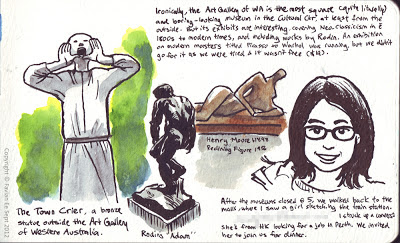 Ironically, the Art Gallery of WA is the most square (quite literally)
and boring-looking museum in the Cultural Ctr, at least from the
outside. But its exhibits are interesting, covering Neo Classicism in E
1800s to modern times, and including works by Rodin. An exhibition
on modern masters titled Picasso to Warhol was running, but we didn't
go for it as we were tired & it wasn't free
Henry Moore's
Reclining Figure
The Town Crier, a bronze
statue outside the Art Gallery
of Western Australia.
Rodin's "Adam"
After the museums closed @ 5, we walked back to the
malls, where I saw a girl sketching the train station.
I struck up a
She's from HK looking for a job in Perth. We invited
her to join us for dinner.